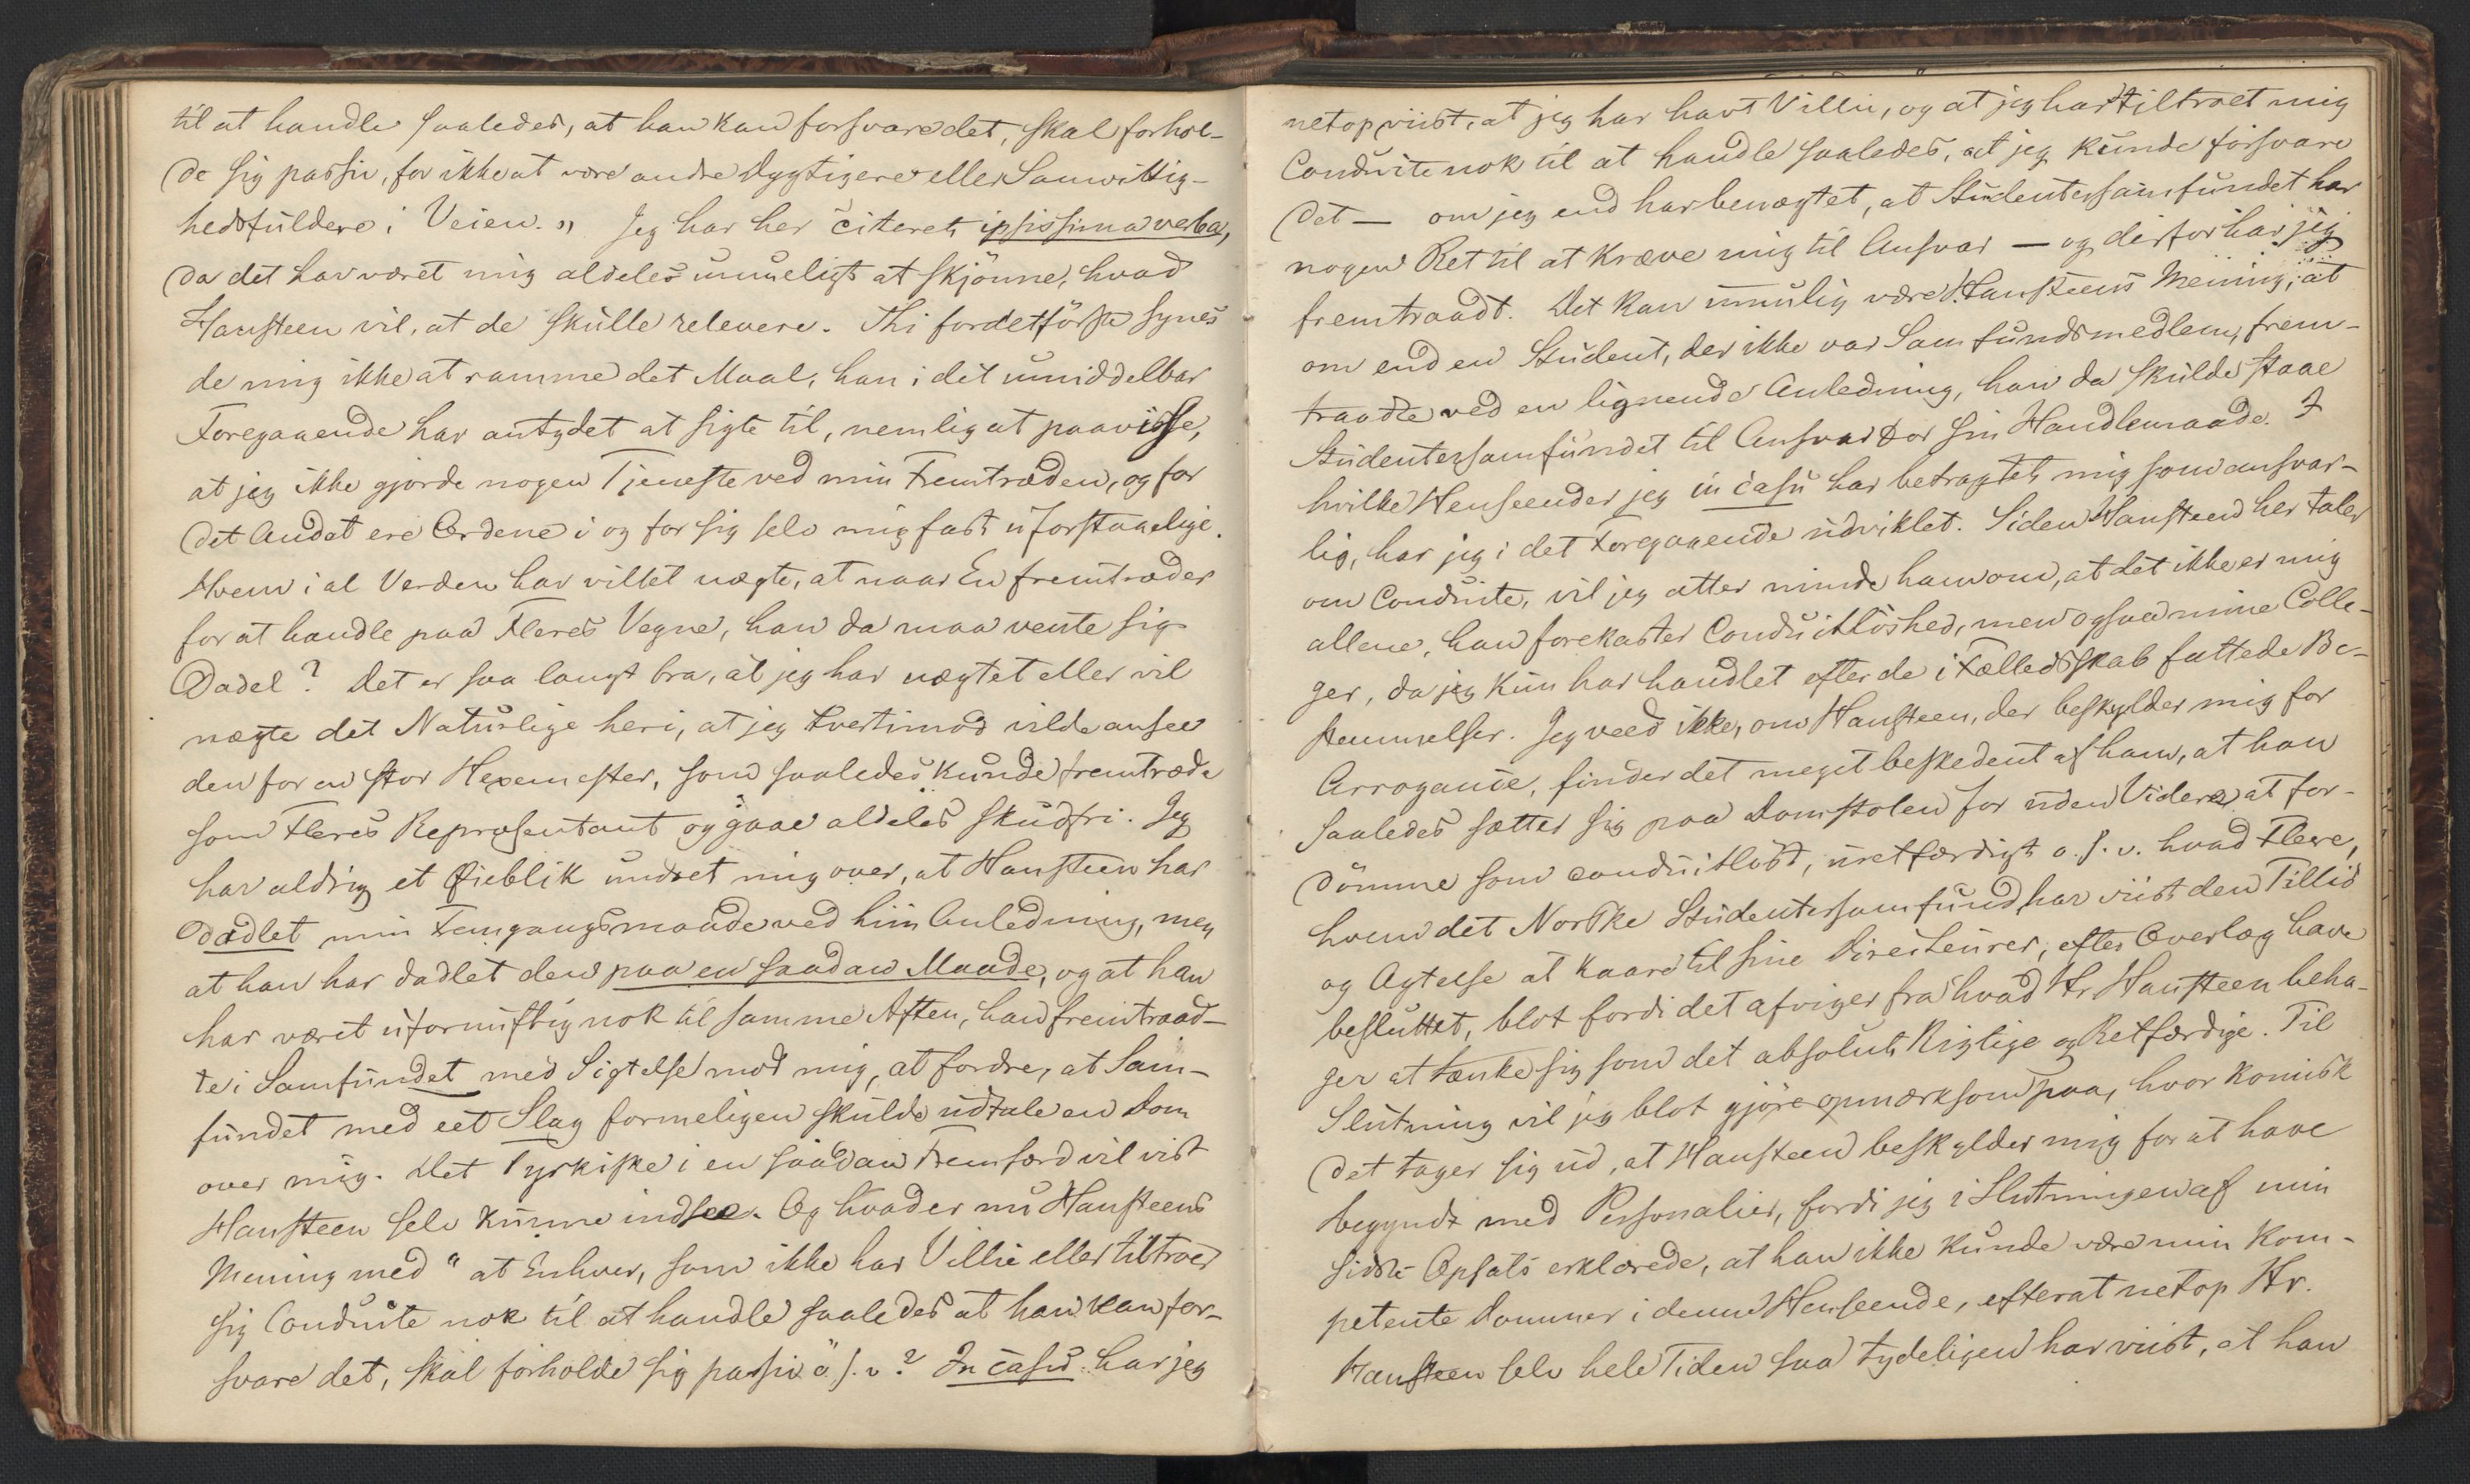 til at handle saaledes, at han kan forsvare det, skal forhol-
de sig passiv, for ikke at være andre Dygtigere eller Samvittig-
hedsfuldere i Veien." Jeg har her citeret ipsissima verba,
da det har været mig aldeles umueligt at skjönne, hvad
Hansteen vil, at de skulle relevere. Thi fordetförste synes
de mig ikke at ramme det Maal, han i det umiddelbar
Foregaaende har antydet at sigte til, nemlig at paavise,
at jeg ikke gjorde nogen Tjeneste ved min Fremtræden, og for
det Andet ere Ordene i og for sig selv mig fast uforstaaelige.
Hvem i al Verden har villet nægte, at naar En fremtræder
for at handle paa Fleres Vegne, han da maa vente sig
Dadel? Det er saa langt fra, at jeg har nægtet eller vil
nægte det Naturlige heri, at jeg tvertimod vilde ansee
den for en stor Hexemester, som saaledes kunde fremtræde
som Fleres Repræsentant og gaae aldeles skudfri. Jeg
har aldrig et Øieblik undret mig over, at Hansteen har
dadlet min Fremgangsmaade ved hiin Anledning, men
at han har dadlet den paa en saadan Maade, og at han
har været ufornuftig nok til samme Aften, han fremtraad-
te i Samfundet med Sigtelse mod mig, at fordre, at Sam-
fundet med eet Slag formeligen skulde udtale en Dom
over mig. Det Tyrkiske i en saadan Fremfærd vil vist
Hansteen selv kunne indsee. Og hvad er nu Hansteens
Mening med "at Enhver, som ikke har Villie eller tiltroer
sig Conduite nok til at handle saaledes at han kan for-
svare det, skal forholde sig passiv o. s. v? In casu har jeg
netop viist, at jeg har havt Villie, og at jeg har tiltroet mig
Conduite nok til at handle saaledes, at jeg kunde forsvare
det — om jeg end har benægtet, at Studentersamfundet har
nogen Ret til at kræve mig til Ansvar — og derfor har jeg
fremtraadt. Det kan umulig være Hansteens Mening, at
om end en Student, der ikke var Samfundsmedlem, frem-
traadte ved en lignende Anledning, han da skulde staae
Studentersamfundet til Ansvar for sin Handlemaade. I
hvilke Henseender jeg in casu har betragtet mig som ansvar-
lig, har jeg i det Foregaaende udviklet. Siden Hansteen her taler
om Conduite, vil jeg atter minde ham om, at det ikke er mig
allene, han forekaster Conduitlöshed, men ogsaa mine Colle-
ger, da jeg kun har handlet efter de i Fælledsskab fattede Be-
stemmelser. Jeg veed ikke, om Hansteen, der beskylder mig for
Arrogance, finder det meget beskedent af ham, at han
saaledes sætter sig paa Domstolen for uden Videre at for-
dömme som conduitlöst, uretfærdigt o. s. v. hvad Flere,
hvem det Norske Studentersamfund har viist den Tillid
og Agtelse at kaare til sine Directeurer, efter Overlæg have
besluttet, blot fordi det afviger fra hvad Hr Hansteen beha-
ger at tænke sig som det absolut Rigtige og Retfærdige. Til
Slutning vil jeg blot gjöre opmærksom paa, hvor komisk
det tager sig ud, at Hansteen beskylder mig for at have
begyndt med Personalier, fordi jeg i Slutningen af min
sidste Opsats erklærede, at han ikke kunde være min kom-
petente Dommer i denne Henseende, efterat netop Hr.
Hansteen selv hele Tiden saa tydeligen har viist, at han